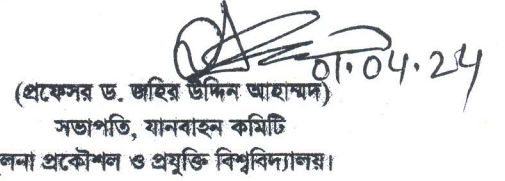 ০১.০৪.২৪
(প্রফেসর ড. জহির উদ্দিন আহাম্মদ)
সভাপতি, যানবাহন কমিটি
লনা প্রকৌশল ও প্রযুক্তি বিশ্ববিদ্যালয়।